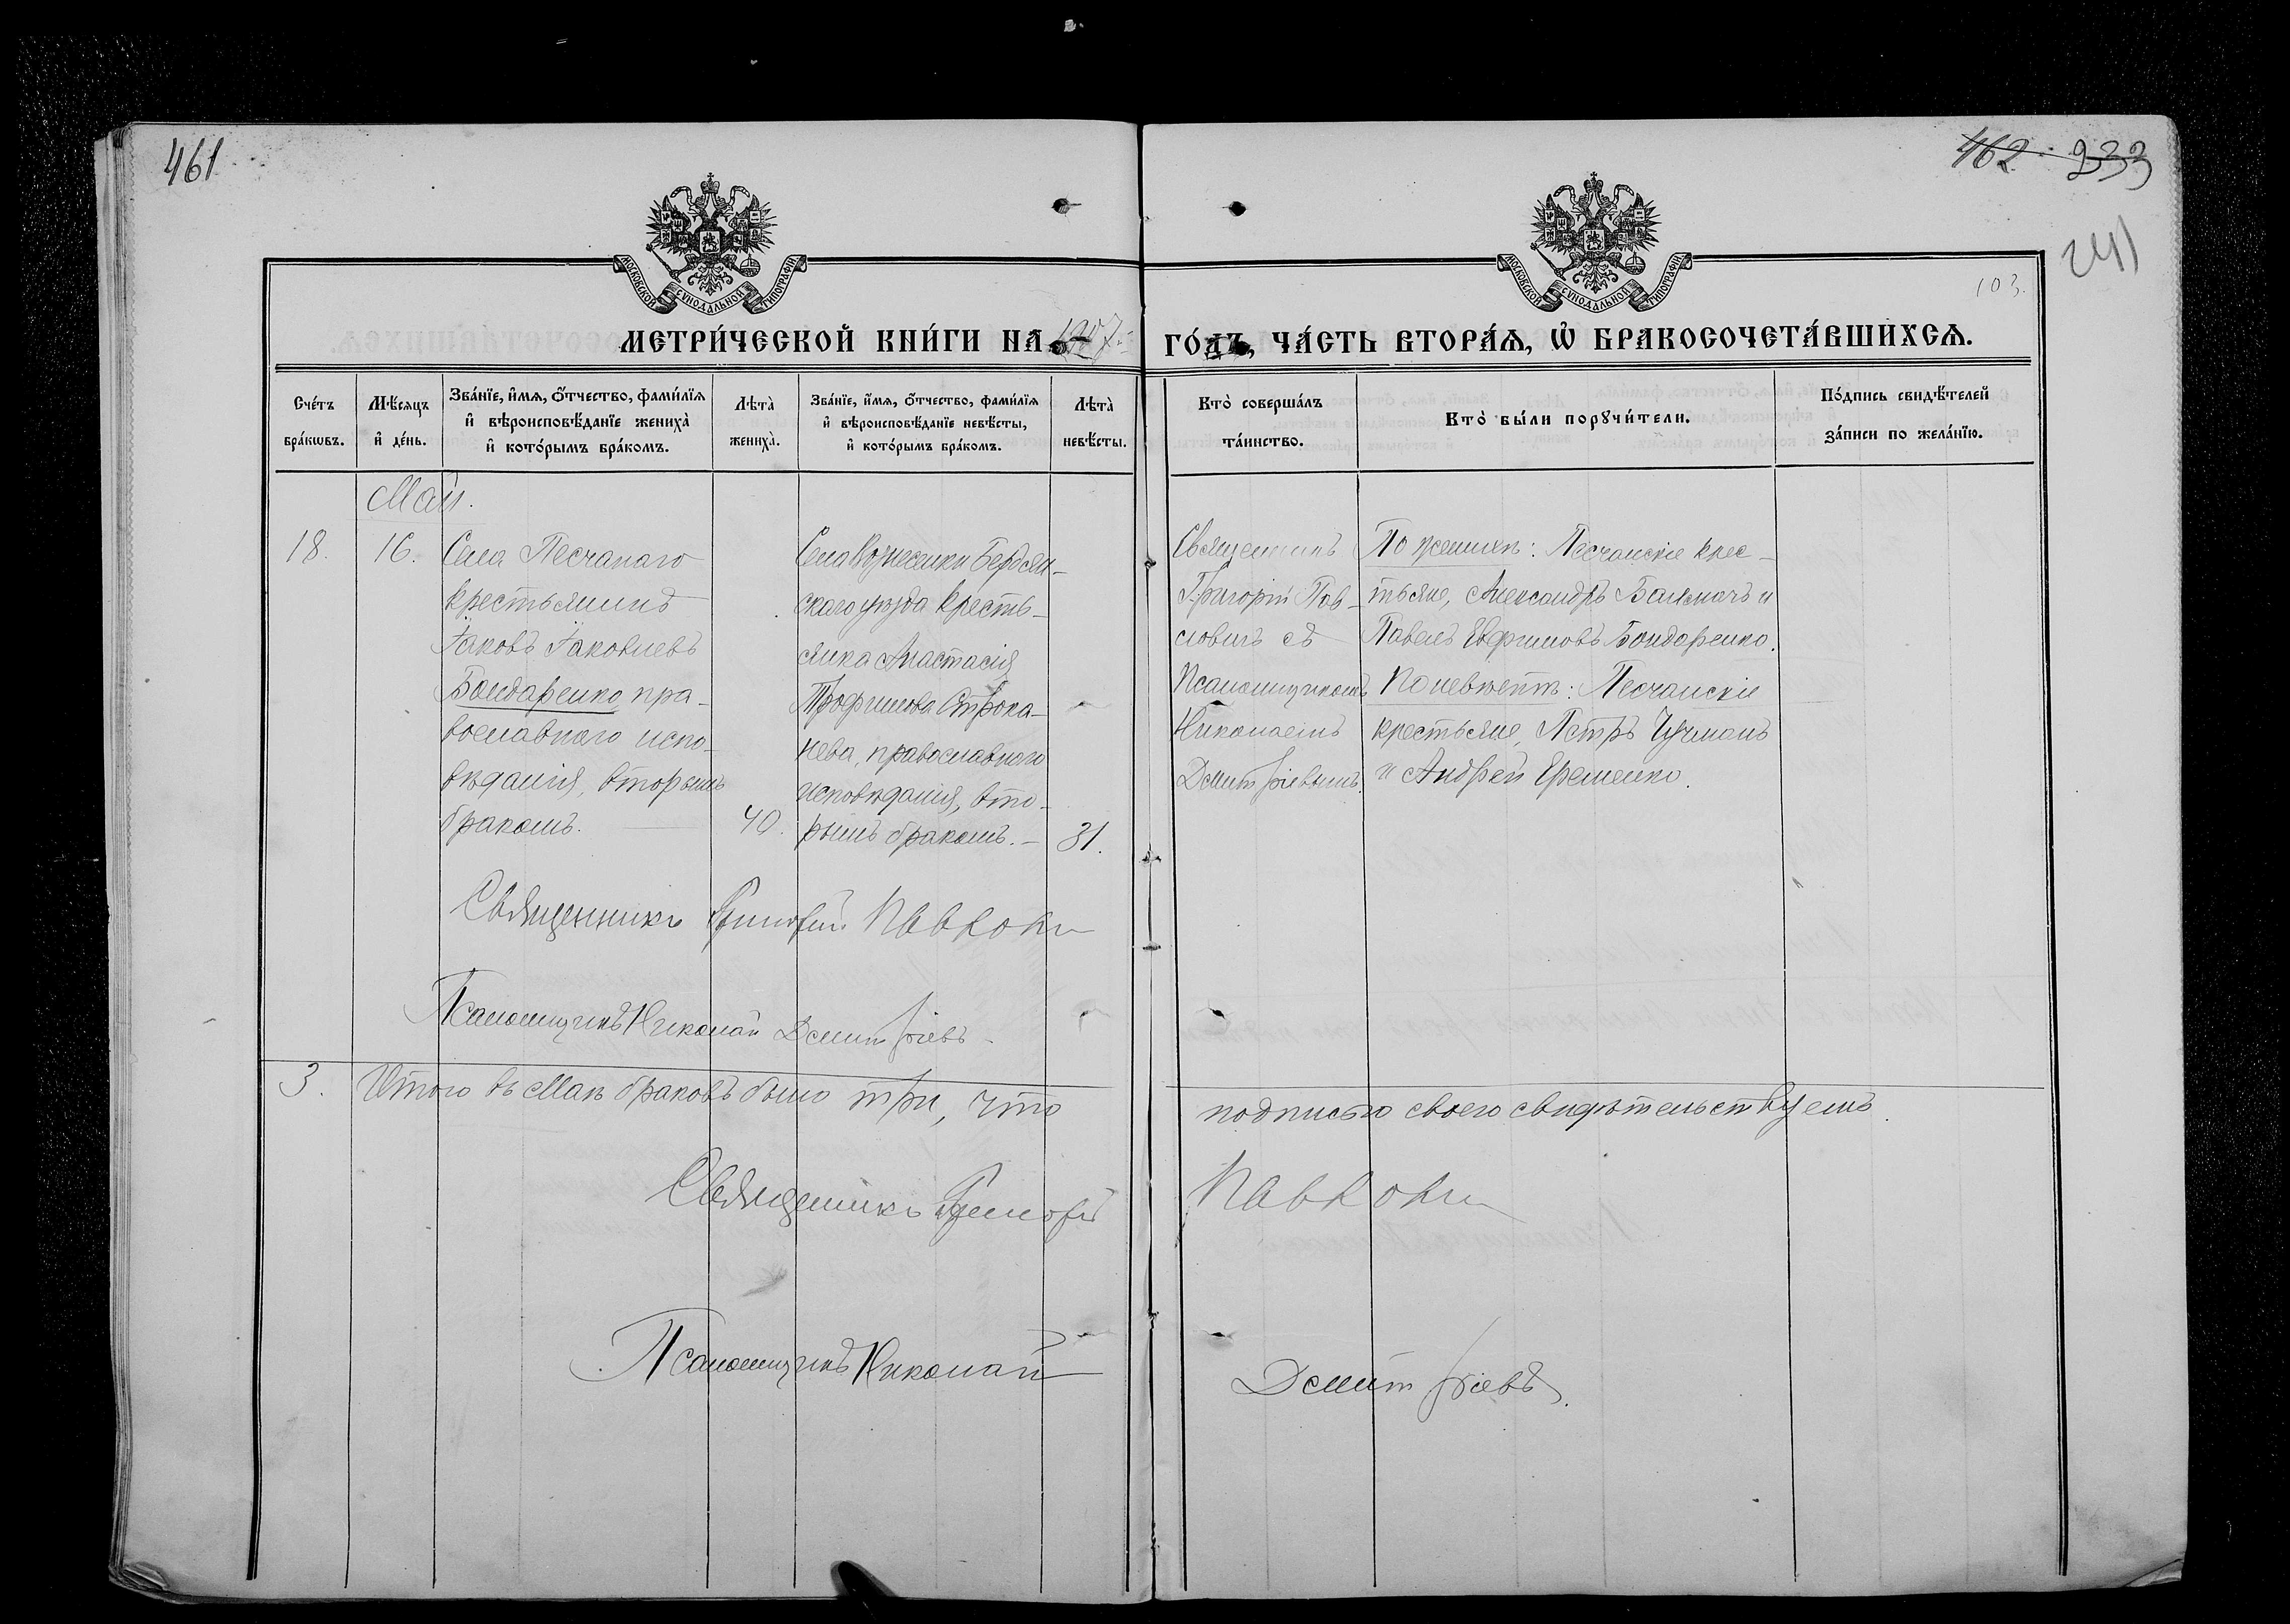 461
462 233
241
103.
МОСКОВСКОЙ СѴНОДАЛЬНОЙ ТИПОГРАФІИ
МОСКОВСКОЙ СѴНОДАЛЬНОЙ ТИПОГРАФІИ
МЕТРИ́ЧЕСКОЙ КНИ́ГИ НА 1907
ГО́ДЪ, ЧА́СТЬ ВТОРА́Я, Ѡ БРАКОСОЧЕТА́ВШИХСЯ.
Сче́тъ
бра́кѡвъ.
Мѣ́сяцъ
и де́нь.
Зва́нїе, и́мя, о́тчество, фами́лїя
и вѣроисповѣ́данїе жениха̀
и кото́рымъ бра́комъ.
Лѣта̀
жениха̀.
Зва́нїе, и́мя, о́тчество, фами́лїя
и вѣроисповѣ́данїе невѣ́сты,
и кото́рымъ бра́комъ.
Лѣта̀
невѣ́сты.
Кто̀ соверша́лъ
та́инство.
Кто̀ бы́ли порꙋчи́тели.
По́дпись свидѣ́телей
за́писи по жела́нїю.
Май.
18.
16.
Села Песчанаго
крестьянинъ
Іаковъ Іаковлевъ
Бондаренко, пра-
вославнаго испо-
вѣданія, вторымъ
бракомъ.
40.
Села Вознесенки Бердян-
скаго уѣзда кресть-
янка Анастасія
Трофимова Строка-
нева, православнаго
исповѣданія, вто-
рымъ бракомъ. –
31.
Священникъ
Григорій Пав-
ловичъ съ
Псаломщикомъ
Николаемъ
Дмитріевымъ.
По женихѣ: Песчанскіе крес-
тьяне, Александръ и
Павелъ Евфимовъ Бондаренко.
По невѣстѣ: Песчанскіе
крестьяне, Петръ Чучманъ
и Андрей Еременко.
Священникъ Григорій
Псаломщикъ Николай Дмитріевъ.
3. Итого въ Маѣ браковъ было три, что
подписью своею свидѣтельствуемъ.
Священникъ Григорій
Псаломщикъ Николай
Дмитріевъ.